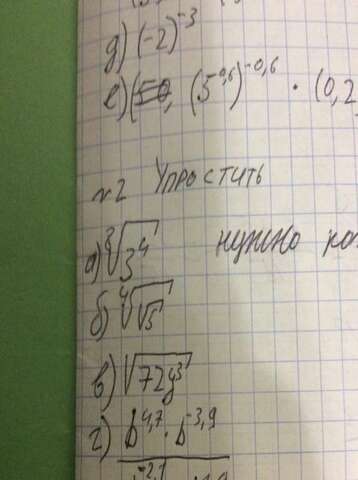 д) (-2)⁻³
е) (5⁻⁰,⁶)⁻⁰,⁶ · (0,2
№2 Упростить
а) ∛3⁴ нужно
б) ∜√5
в) √72y³
г) b⁴,⁷ · b⁻³,⁹